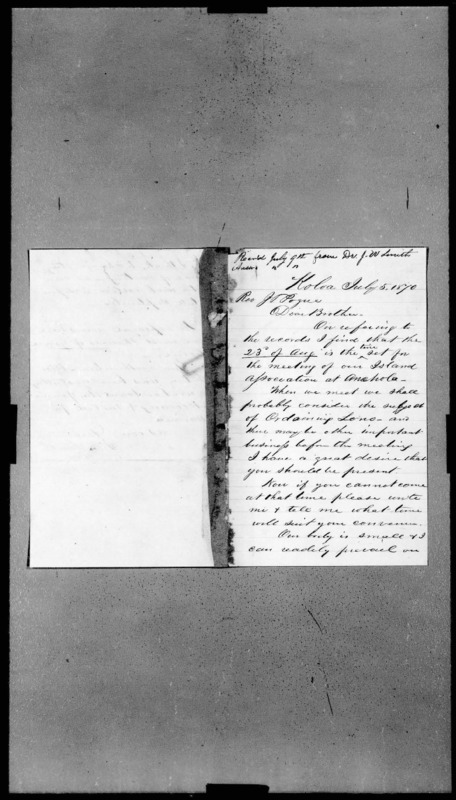 Rec'd July 9th from Dr J. W Smith
Ans'd " "
Koloa July 5. 1870
Rev J F Pogue
Dear Brother.
On refering to
the records I find that the
23d of Aug is the time set for
the meeting of our Island
Association at Anahola -
When we meet we shall
probably consider the subject
of Ordaining Lono - and
there may be other important
business before the meeting
I have a great desire that
you should be present
Now if you cannot come
at that time please write
me & tell me what time
will suit your convenience.
Our body is small & I
can readily prevail on